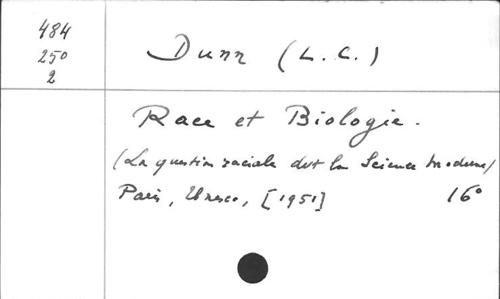 484
250
2
Dunn (L. C.)
Race et Biologie.
(La question raciale dvt la Science Moderne)
Paris, Unesco, [1951] 16°